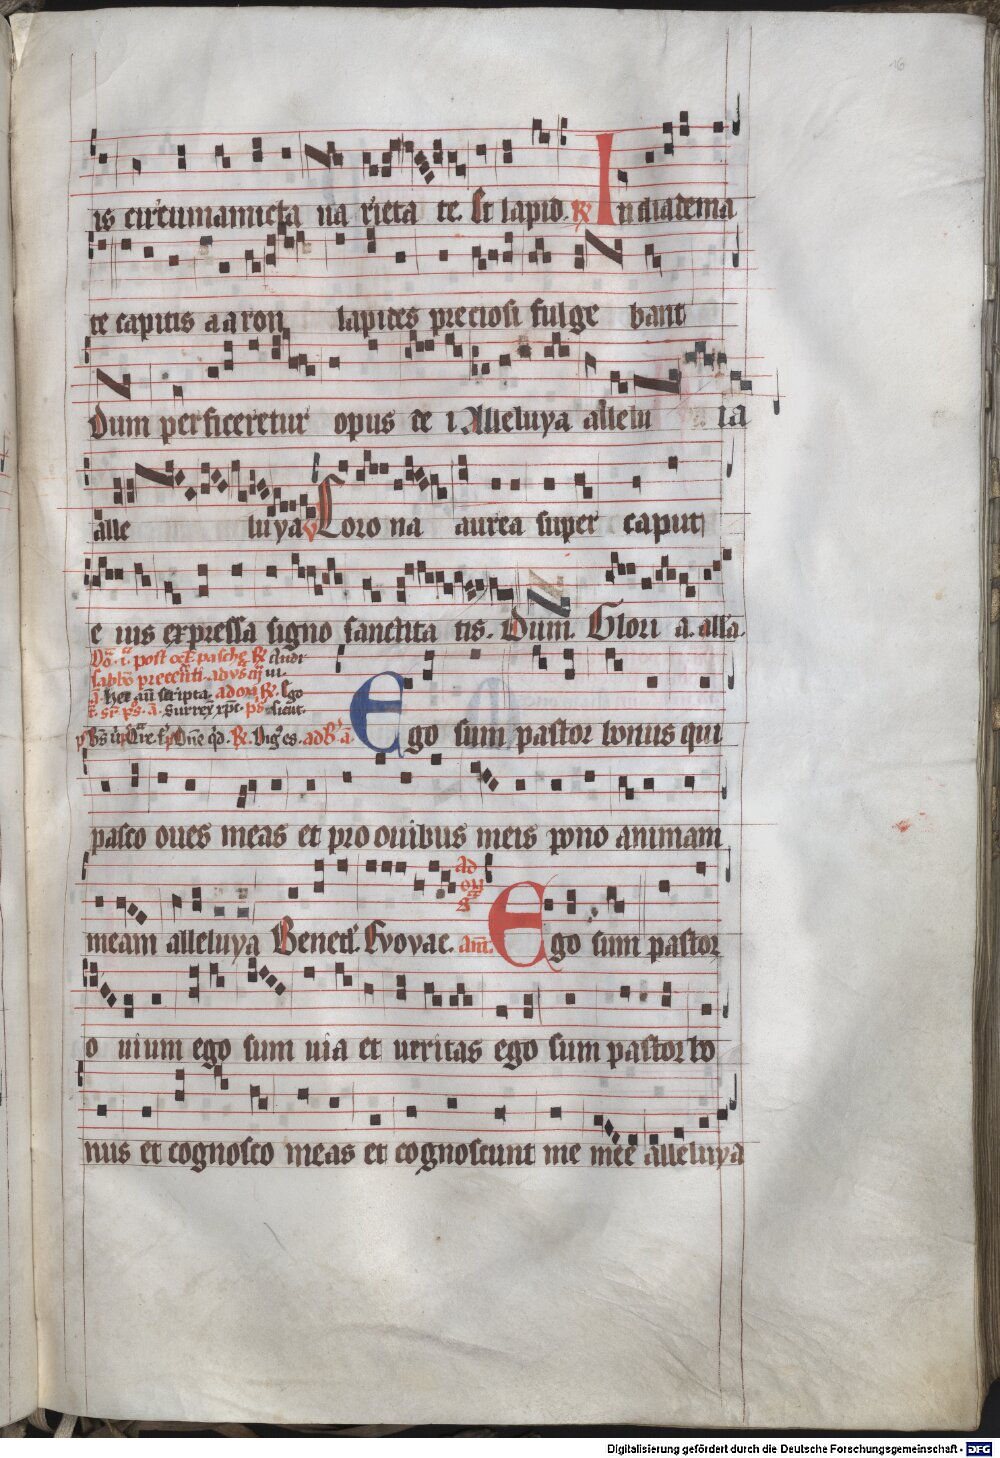 16
is circumamicta ua rieta te. Et lapid. R In diadema
te capitis aaron lapites preciosi fulge bant
Dum perficeretur opus de i Alleluya allelu ia
alle lu ya V Coro na aurea super caput
e ius expressa signo sanctita tis. Dum. Glori a. alla.
post oct pasche R
sabbo precedenti. ad vs
scripta. ad R. Ego
Surrex xpc. sicut.
Ego sum pastor bonus qui
pasco oues meas et pro ouibus meis pono animam
ad
meam alleluya Bened. Evovae. ant. Ego sum pastor
o uium ego sum uia et ueritas ego sum pastor bo
nus et cognosco meas et cognoscunt me mee alleluya
Digitalisierung gefördert durch die Deutsche Forschungsgemeinschaft - DFG